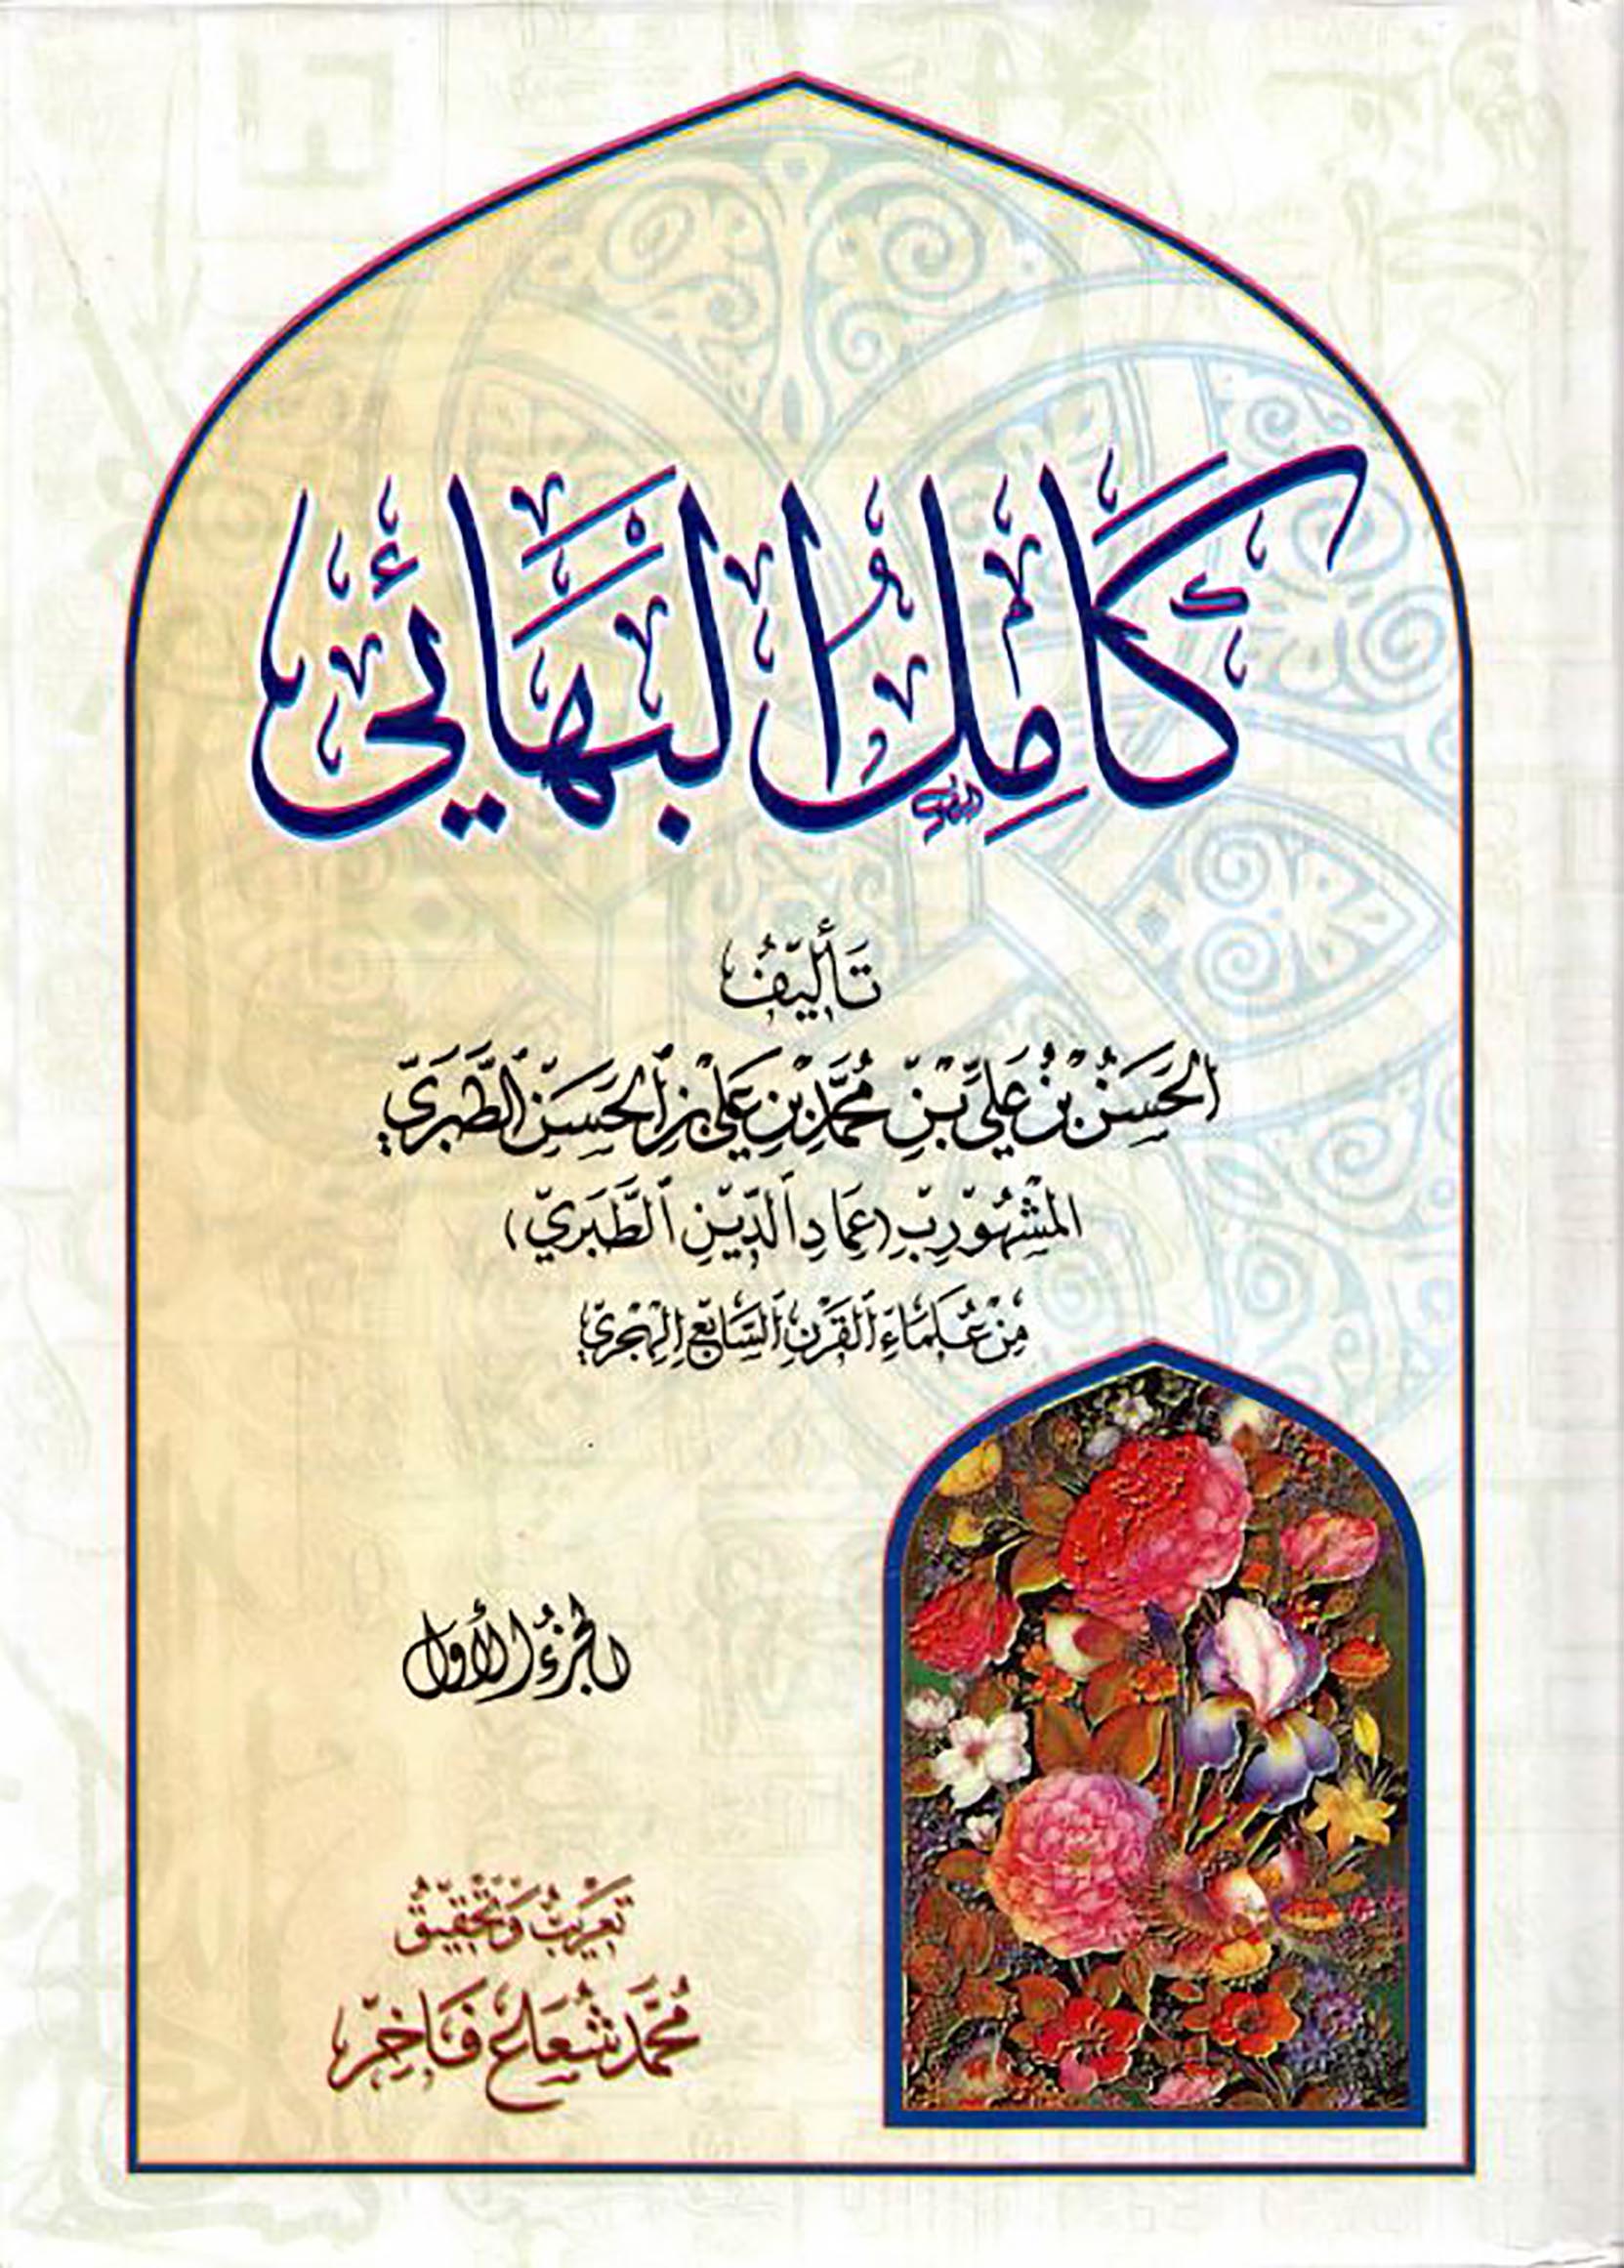 كَامِلُ الْبَهَائِي
تَأْلِيفُ
الحَسَنُ بْنُ عَلِيِّ بْنِ مُحَمَّدِ بْنِ عَلِي بْنِ الحَسَنِ الطَّبَرِيّ
المَشْهُورِ بِ (عِمَادِ الدِّيْنِ الطَّبَرِيّ)
مِنْ عُلَمَاءِ القَرْنِ السَّابِعِ الهِجْرِيّ
الجُزْءُ الأَوَّل
تَعْرِيبُ وَتَحْقِيقُ
مُحَمَّد شُعَاع فَاخِر